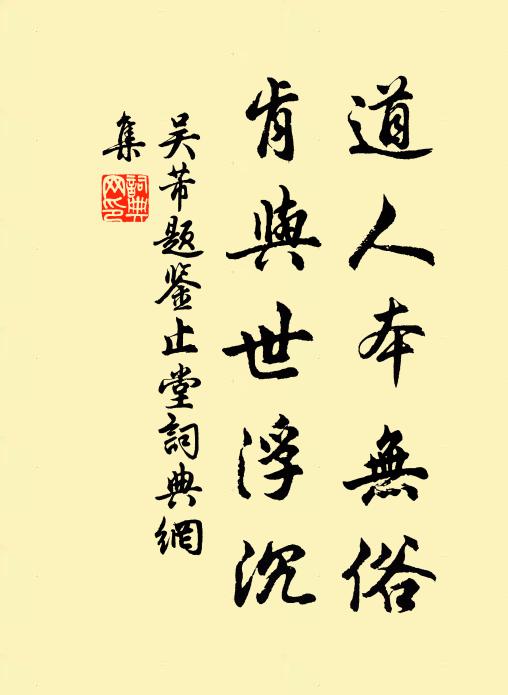 道人本無俗
肯與世浮沉
吴芾題鉴止堂詞典網
集
詞典
網印